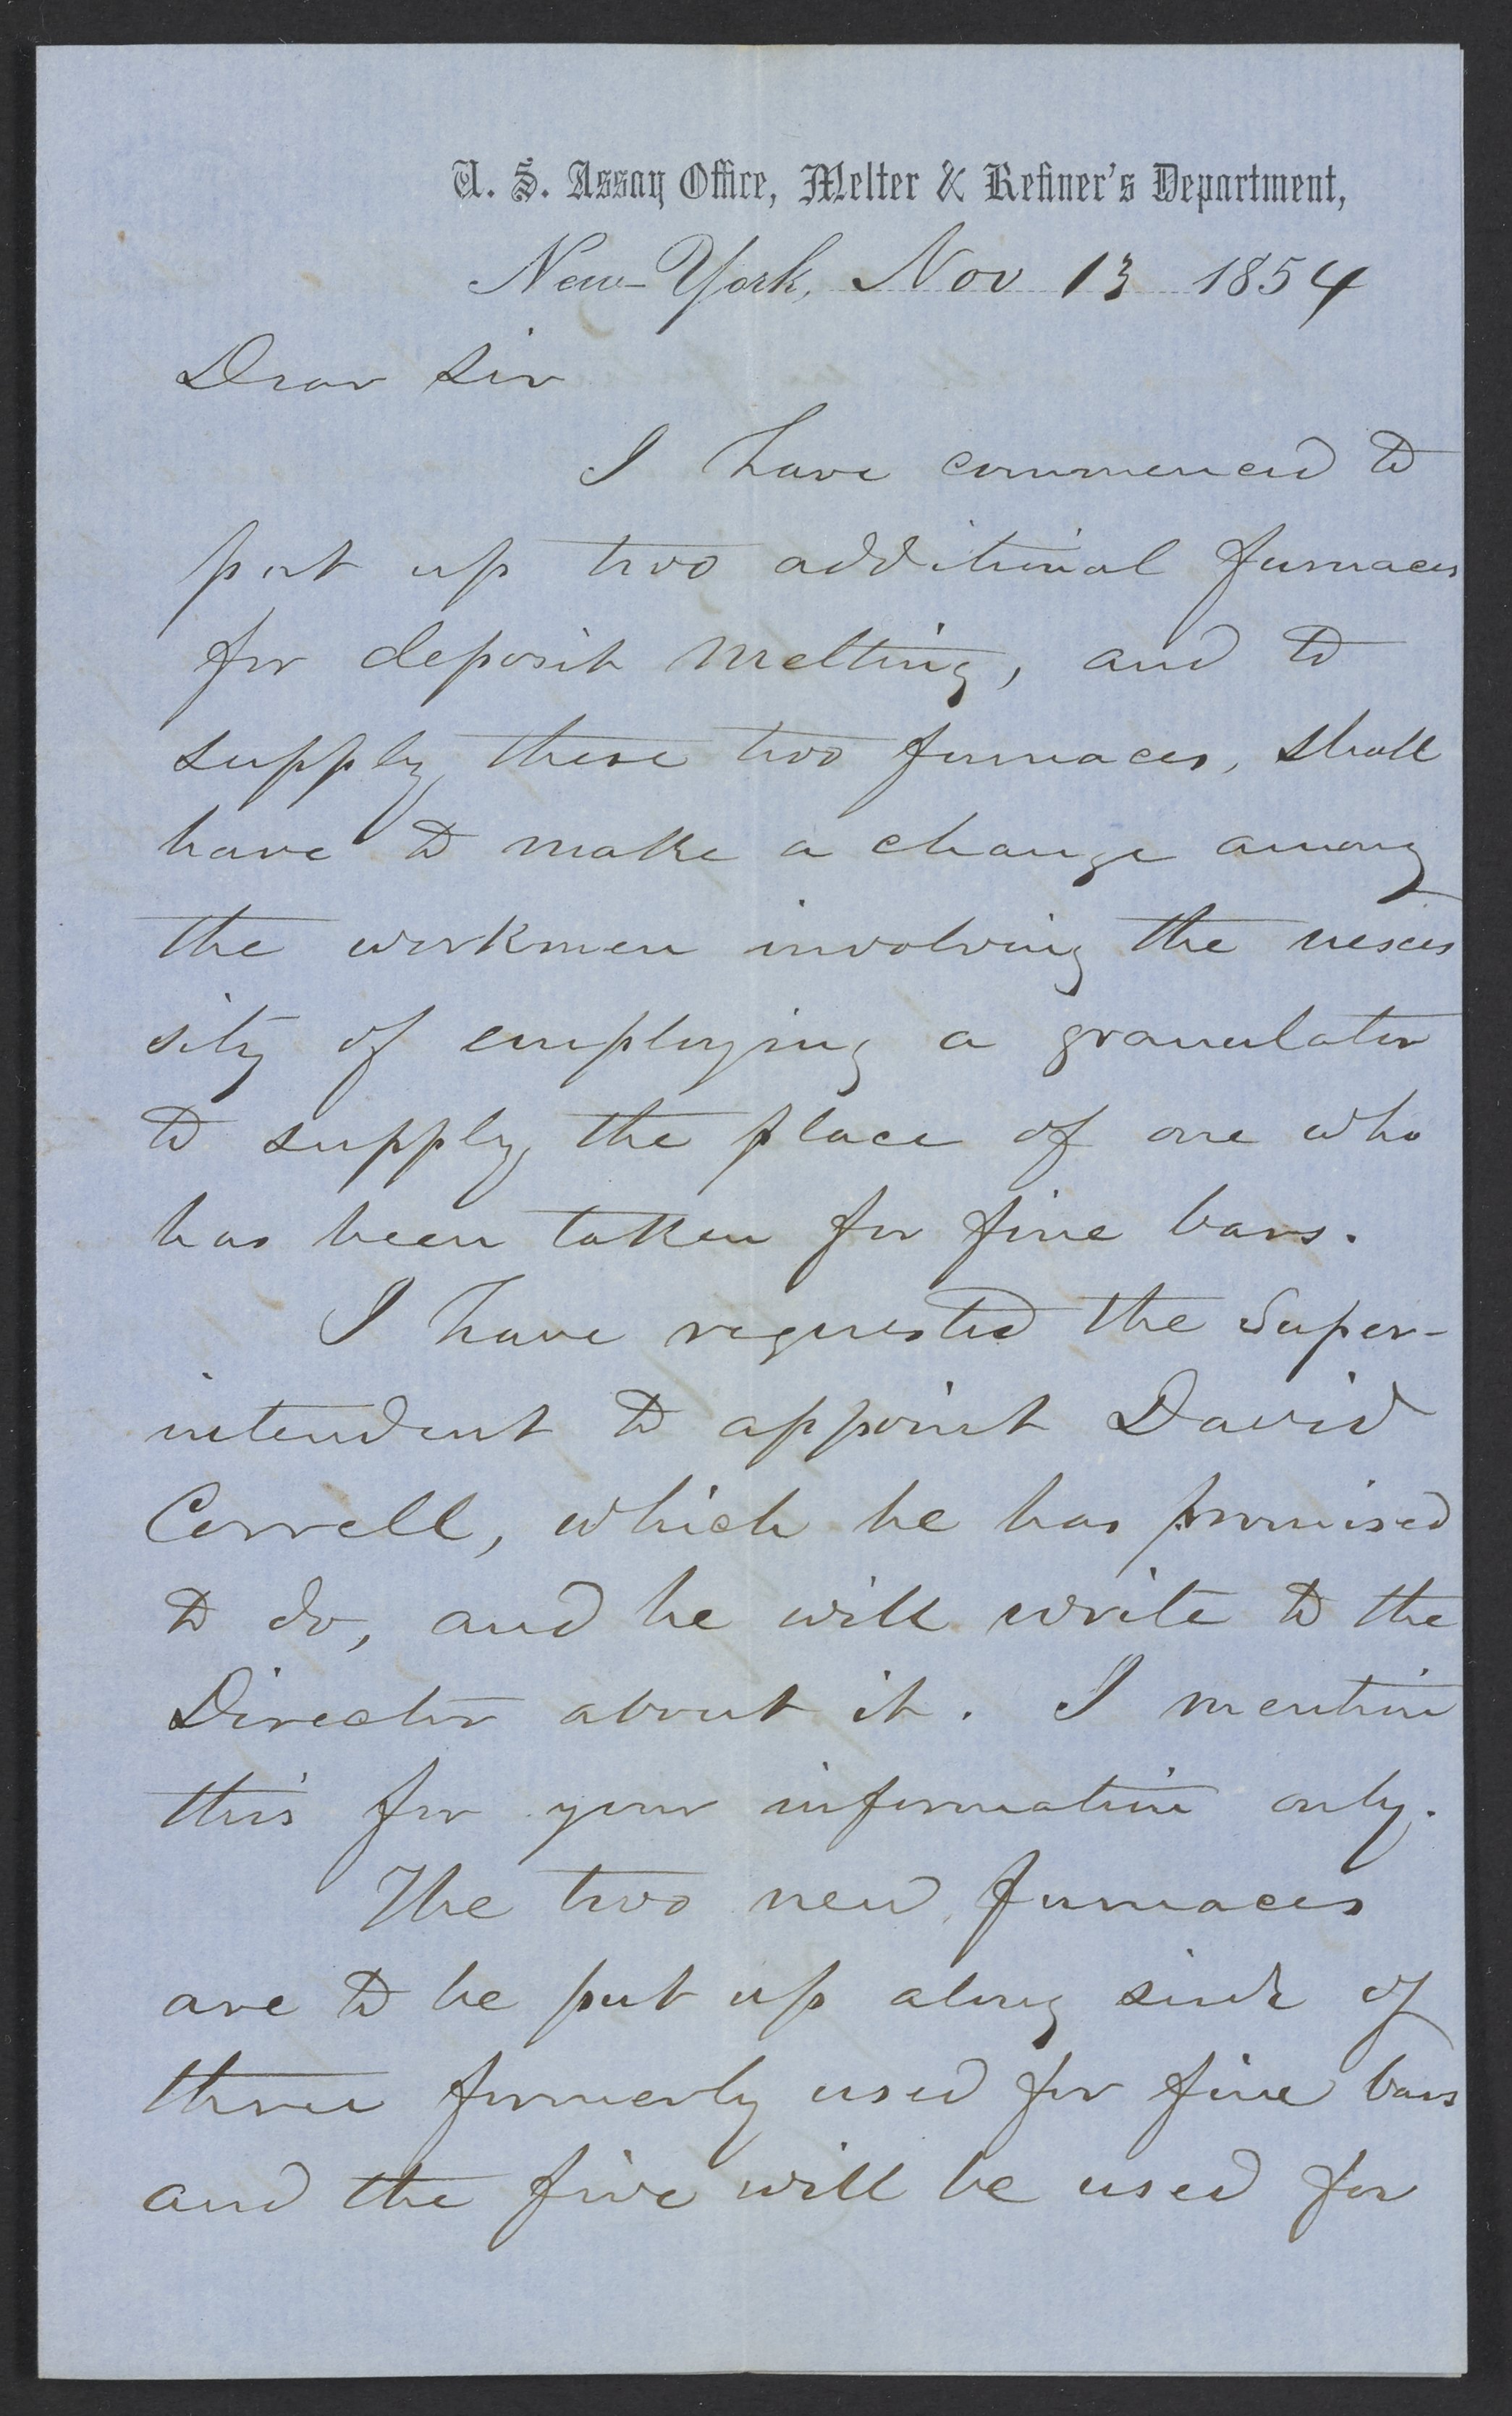 U. S. Assay Office, Melter & Refiner's Department,
New-York, Nov 13 1854
Dear Sir
I have commenced to
put up two additional furnaces
for deposit melting, and to
supply these two furnaces, shall
have to make a change among
the workmen involving the neces
sity of employing a granulator
to supply the place of one who
has been taken for fine bars.
I have requested the Super-
intendent to appoint David
Correll, which he has promised
to do, and he will write to the
Director about it. I mention
this for your information only.
The two new furnaces
are to be put up along side of
three formerly used for fine bars
and the five will be used for